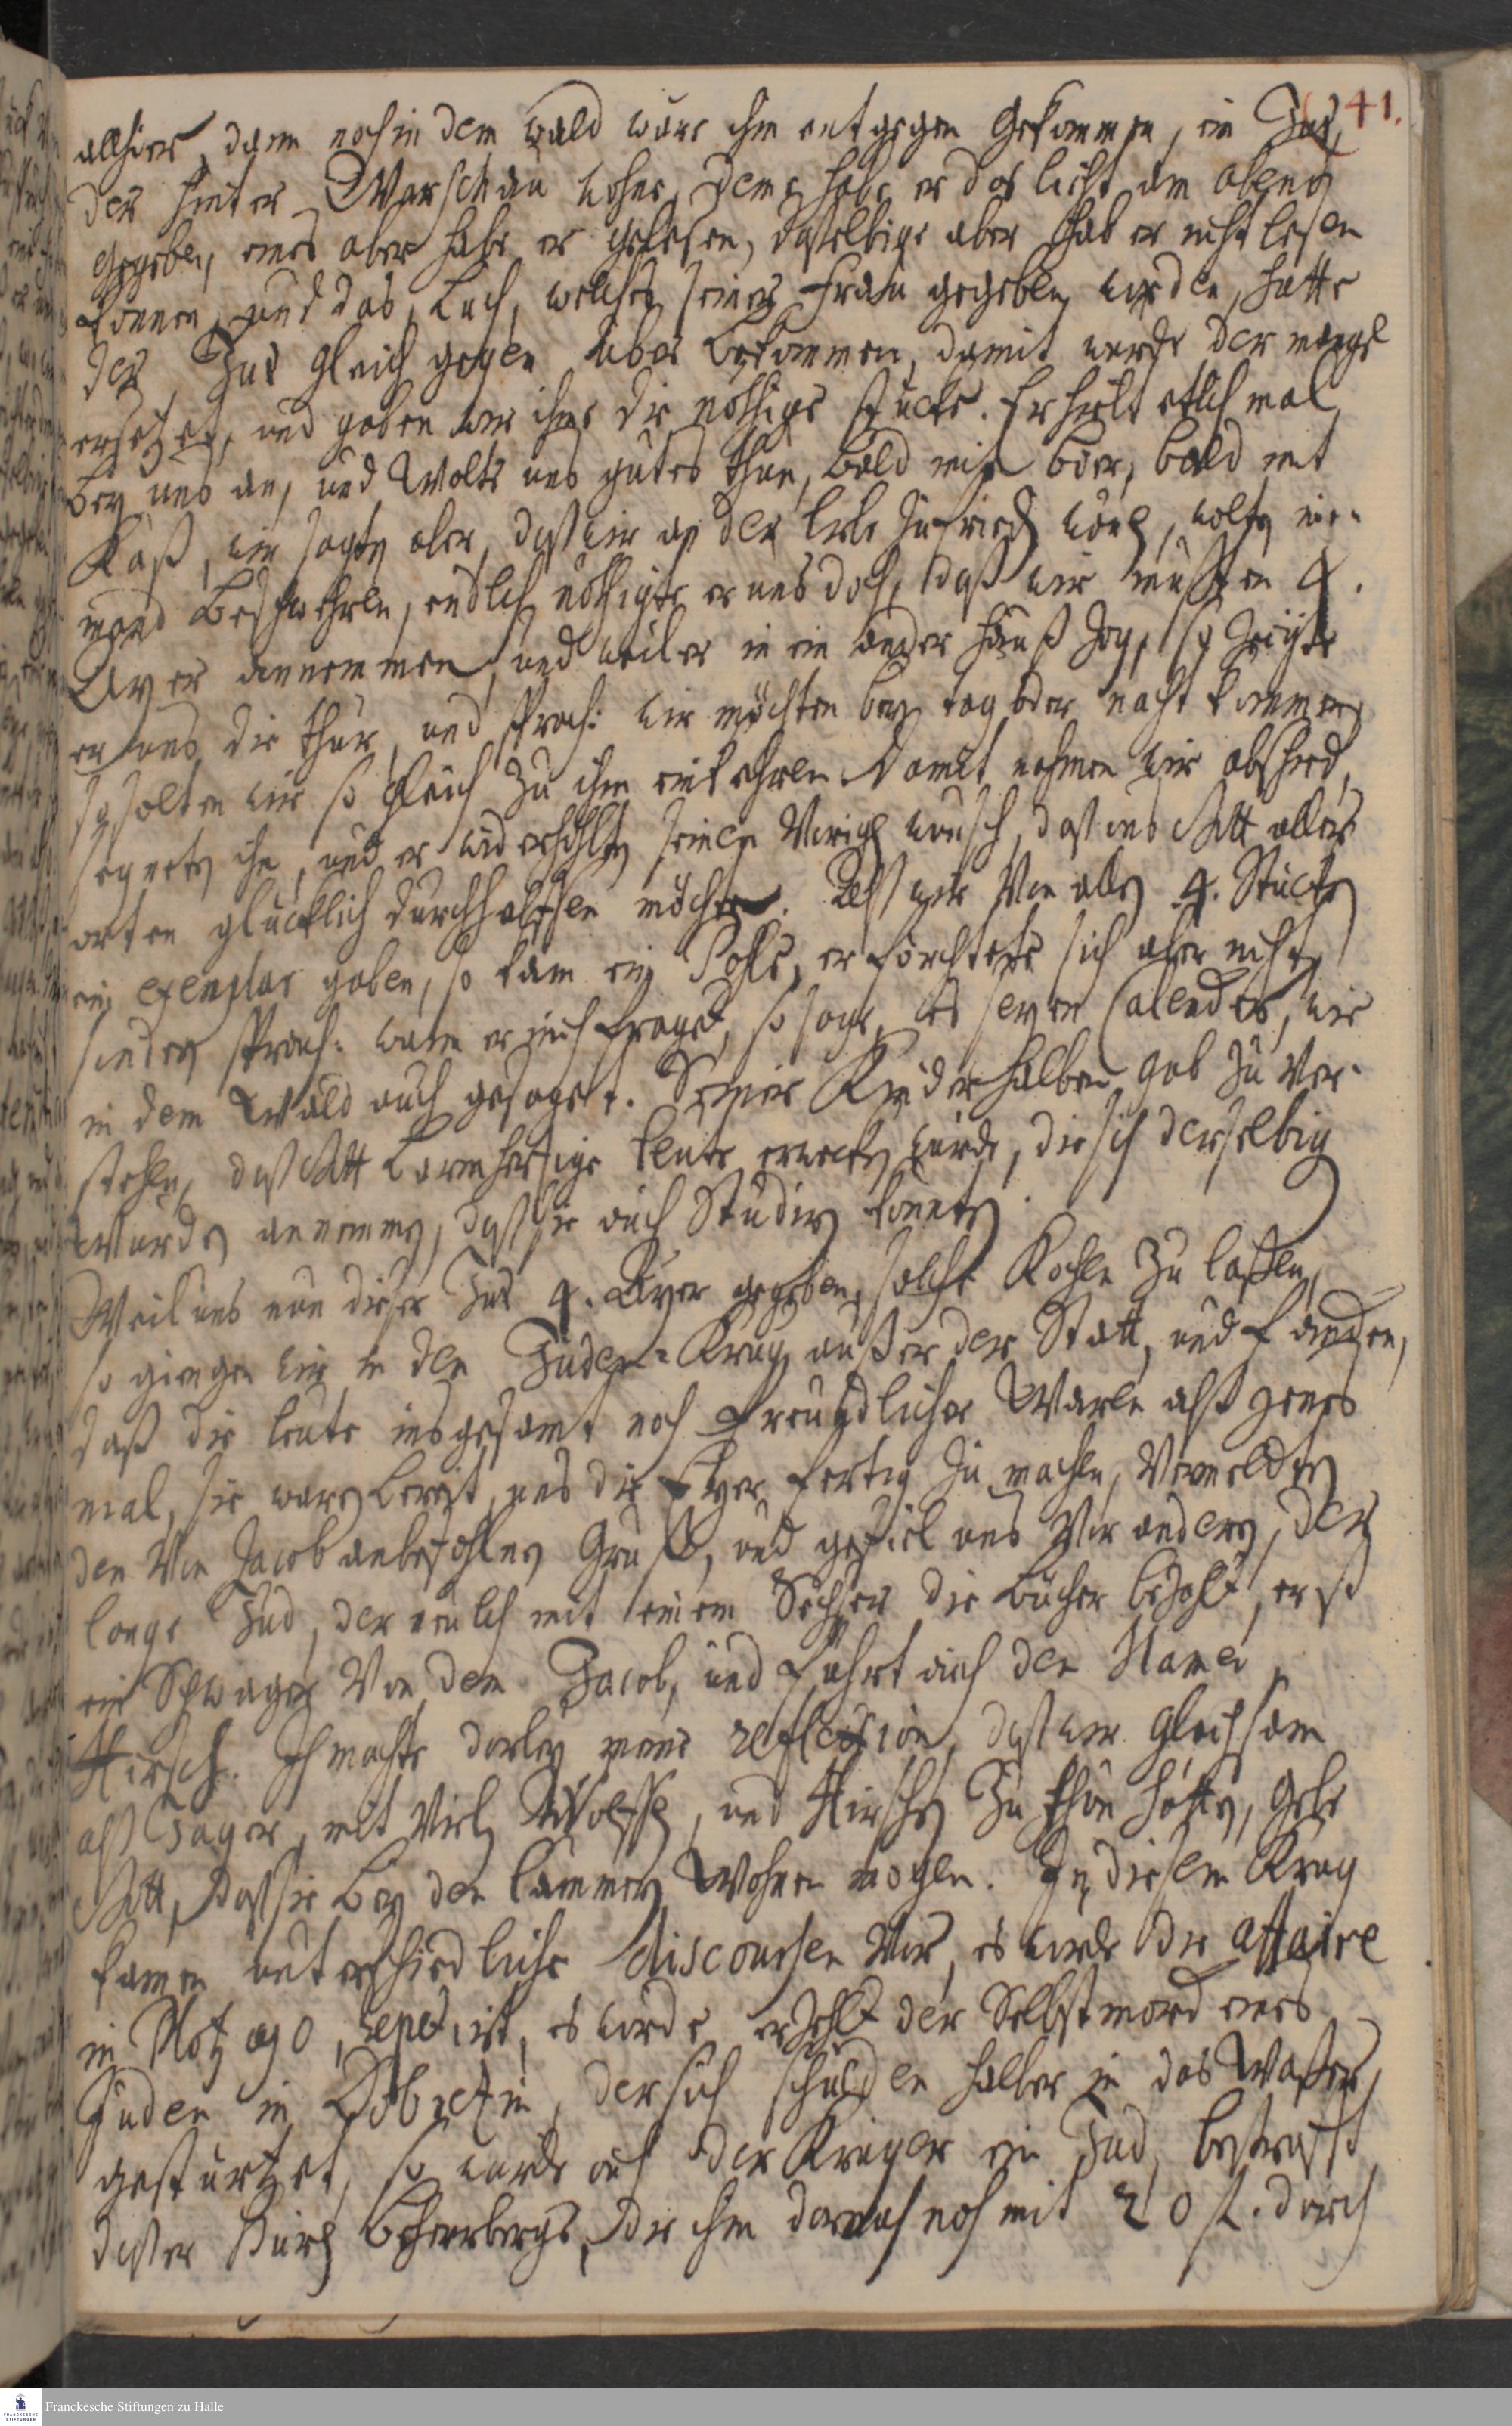 41.
allhier, dann noch in dem wald wäre ihm entgegen gekommen, ein Jud,
der hinter Warschau wohne, deme habe er das licht am abend
gegeben, eines aber habe er gelesen, daßelbige aber hab er nicht lesen
können, und das Buch, welches seiner Frau gegeben worden, hatte
der Jud gleich gegen über bekommen, damit wurde der mangel
ersetzet, und gaben wir ihme die nöthige stücke. Er hielt etlich mal
bey uns an, und Wolte uns gutes thun, bald mit bier, bald mit
Käß, wir sagten aber, daß wir an der liebe zufrieden wären, wolten nie-
mand beschwehren, endlich nöthigte er uns doch, daß wir mußten 4.
Ayer annemmen, und weil er in ein ander Hauß zog, so zeigte
er uns die thür, und sprach: wir möchten bey tag oder nacht kommen,
so solten wir so gleich zu ihm einkehren. Damit nahmen wir abschied,
segneten ihn, und er widerhohlte seinen Vorigen wunsch, daß uns Gott aller
orten glücklich durchhelffen möchte. Alß wir Von allen 4. Stücken
ein exemplar gaben, so kam ein Pohle, er förchtete sich aber nicht,
sondern sprach: wann er mich fraget, so sage, es seyen Calender, wie
in dem Wald auch gesaget. Seiner Kinder halben gab zu Ver-
stehen, daß Gott barmhertzige leute erwecken würde, die sich derselbigen
Würden annemmen, daß sie auch Studiren könnten.
Weil uns nun dieser Jud 4. Ayer gegeben, solche Kochen zu laßen,
so giengen wir in den Juden-Krug, außer der Statt, und fanden,
daß die leute insgesamt noch Freundlicher Waren alß jenes
mal, sie waren bereit, uns die Eyer fertig zu machen, Vermeldten
den Von Jacob anbefohlnen Gruß, und gefiel uns Vor andern, der
lange Jud, der neulich mit einem Sechser die bücher bezahlt, er ist
ein Schwager Von dem Jacob, und führt auch den Namen
Hirsch. Ich machte darbey meine reflexion, daß wir gleichsam
alß Jäger, mit Vielen Wölffen, und Hirschen zu thun hätten, gebe
Gott, daß sie bey den lämmern Wohnen mögen. In diesem Krug
kamen unterschiedliche discoursen Vor, es wurde die affaire
in Plotzago, repetirt, es wurde erzehlt der Selbstmord eines
Juden in Dobrezin, der sich schulden halber in das Waßer
gestürtzet, so wurde auch der Krüger ein Jud, bestrafft
daß er Huren beherberge, die ihm darnach noch mit 20 fl. durch
Franckesche Stiftungen zu Halle